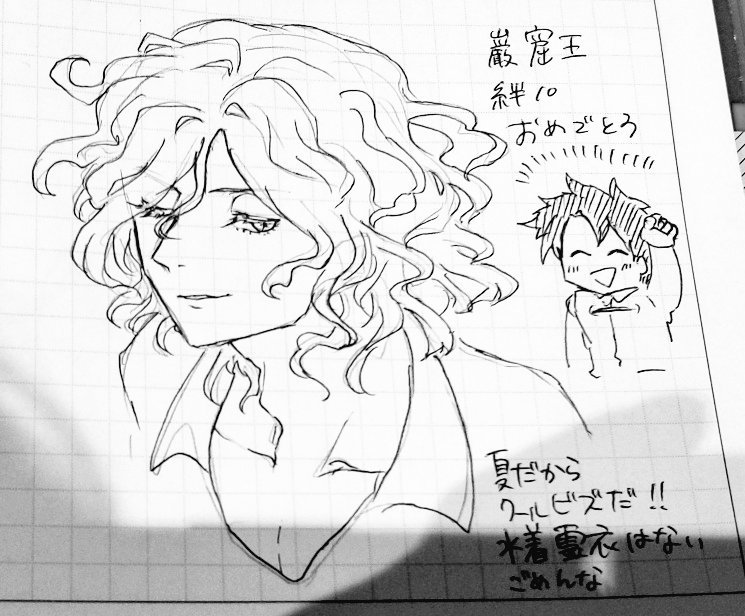 巌窟王
絆10
おめでとう
夏だから
クールビズだ!!
水着霊衣はない
ごめんな